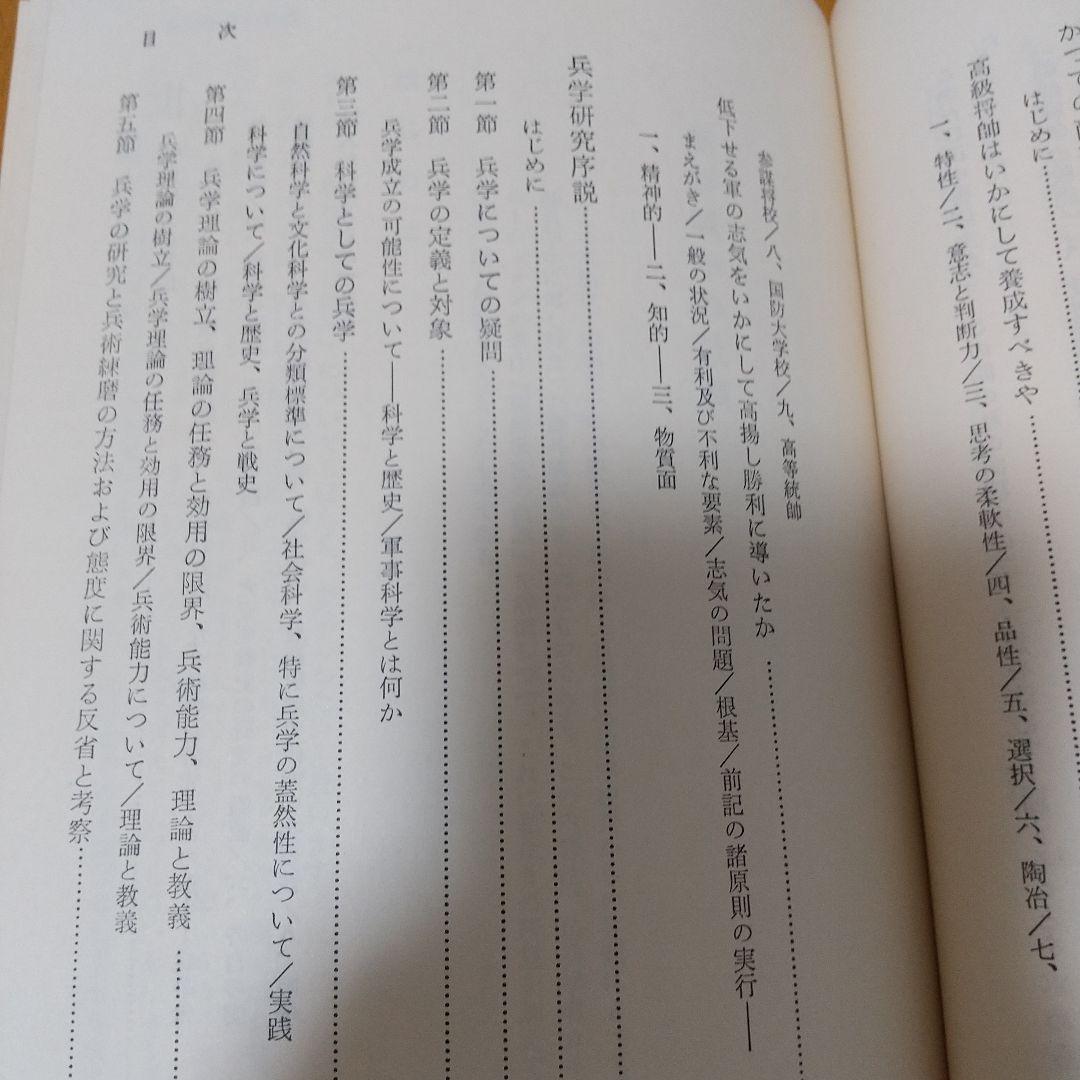 はじめに……………
高級将師はいかにして養成すべきや……………
一、特性／二、意志と判断力／三、思考の柔軟性／四、品性／五、選択／六、陶冶／七、
参謀将校／八、国防大学校／九、高等統帥
低下せる軍の志気をいかにして高揚し勝利に導いたか……………
まえがき／一般の状況／有利及び不利な要素／志気の問題／根基／前記の諸原則の実行――
一、精神的――二、知的――三、物質面
兵学研究序説……………
はじめに……………
第一節　兵学についての疑問……………
第二節　兵学の定義と対象……………
兵学成立の可能性について――科学と歴史／軍事科学とは何か
第三節　科学としての兵学……………
自然科学と文化科学との分類標準について／社会科学、特に兵学の蓋然性について／実践
科学について／科学と歴史、兵学と戦史
第四節　兵学理論の樹立、理論の任務と効用の限界、兵術能力、理論と教義……………
兵学理論の樹立／兵学理論の任務と効用の限界／兵術能力について／理論と教義
第五節　兵学の研究と兵術練磨の方法および態度に関する反省と考察……………
目　次